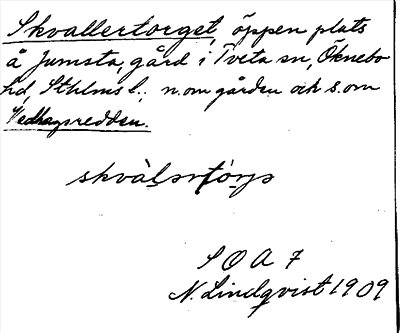 Skvallertorget, öppen plats
å Jumsta, gård i Tveta sn, Öknebo
hd, Sthlms l.; n.om gården och s.om
Vedhagsredden.
skvàlərtóryə
S O A 7
N. Lindqvist 1909